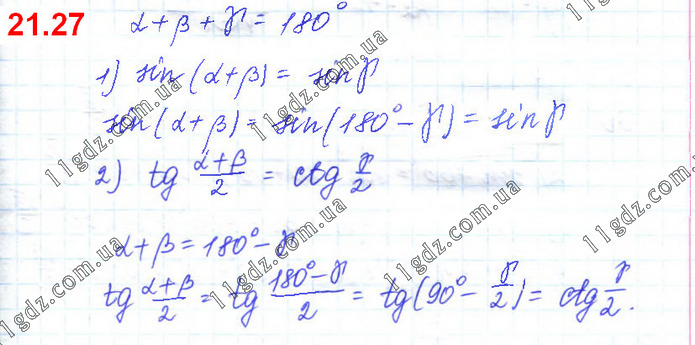 21.27 α + β + γ = 180°
1) sin(α+β) = sin γ
sin(α+β) = sin(180° − γ) = sin γ
2) tg (α+β)/2 = ctg γ/2
α + β = 180° − γ
tg (α+β)/2 = tg (180° − γ)/2 = tg(90° − γ/2) = ctg γ/2.
11gdz.com.ua
11gdz.com.ua
11gdz.com.ua
11gdz.com.ua
11gdz.com.ua
11gdz.com.ua